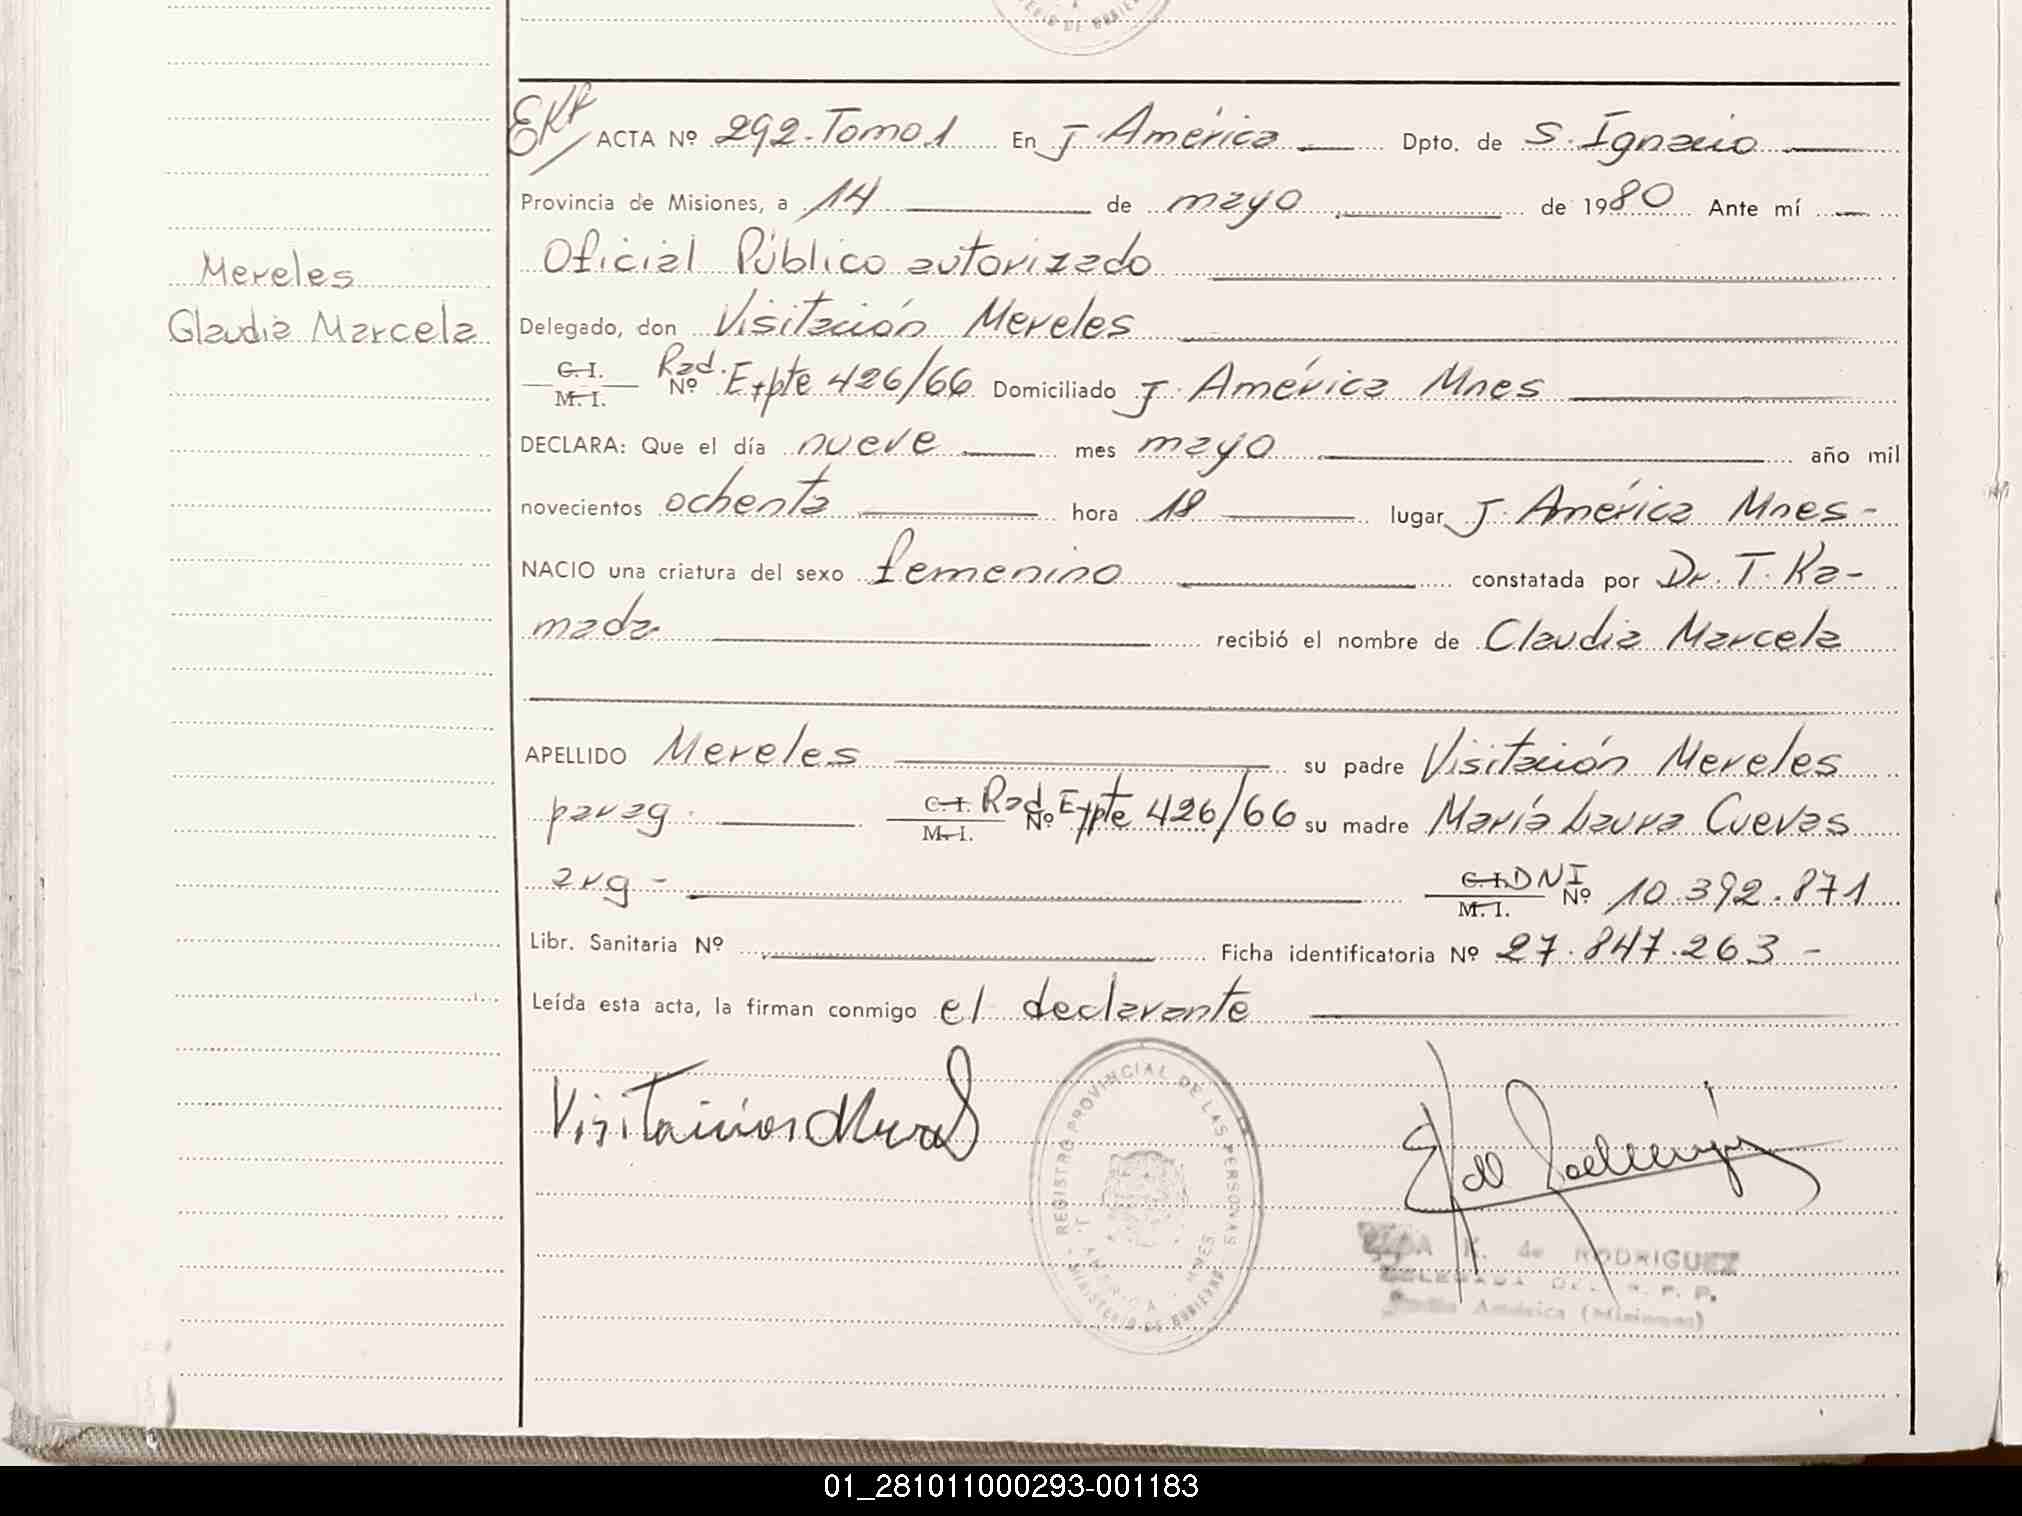 EKR ACTA Nº 292-Tomo 1 En J. América Dpto. de S. Ignacio
Provincia de Misiones, a 14 de mayo de 1980 Ante mí
Oficial Público autorizado
Mereles
Claudia Marcela
Delegado, don Visitación Mereles
C. I. M. I. Rad. Nº Expte 426/66 Domiciliado J. América Mnes
DECLARA: Que el día nueve mes mayo año mil
novecientos ochenta hora 18 lugar J. América Mnes-
NACIO una criatura del sexo femenino constatada por Dr. T. Ka-
mada recibió el nombre de Claudia Marcela
APELLIDO Mereles su padre Visitación Mereles
parag. C. I. M. I. Rad. Nº Expte 426/66 su madre María Laura Cuevas
arg- C. I. M. I. DNI Nº 10.392.871
Libr. Sanitaria Nº Ficha identificatoria Nº 27.847.263-
Leída esta acta, la firman conmigo el declarante
REGISTRO PROVINCIAL DE LAS PERSONAS
J. AMERICA - MNES
MINISTERIO DE GOBIERNO
K. de RODRIGUEZ
DELEGADA DEL R. P. P.
América (Misiones)
01_281011000293-001183